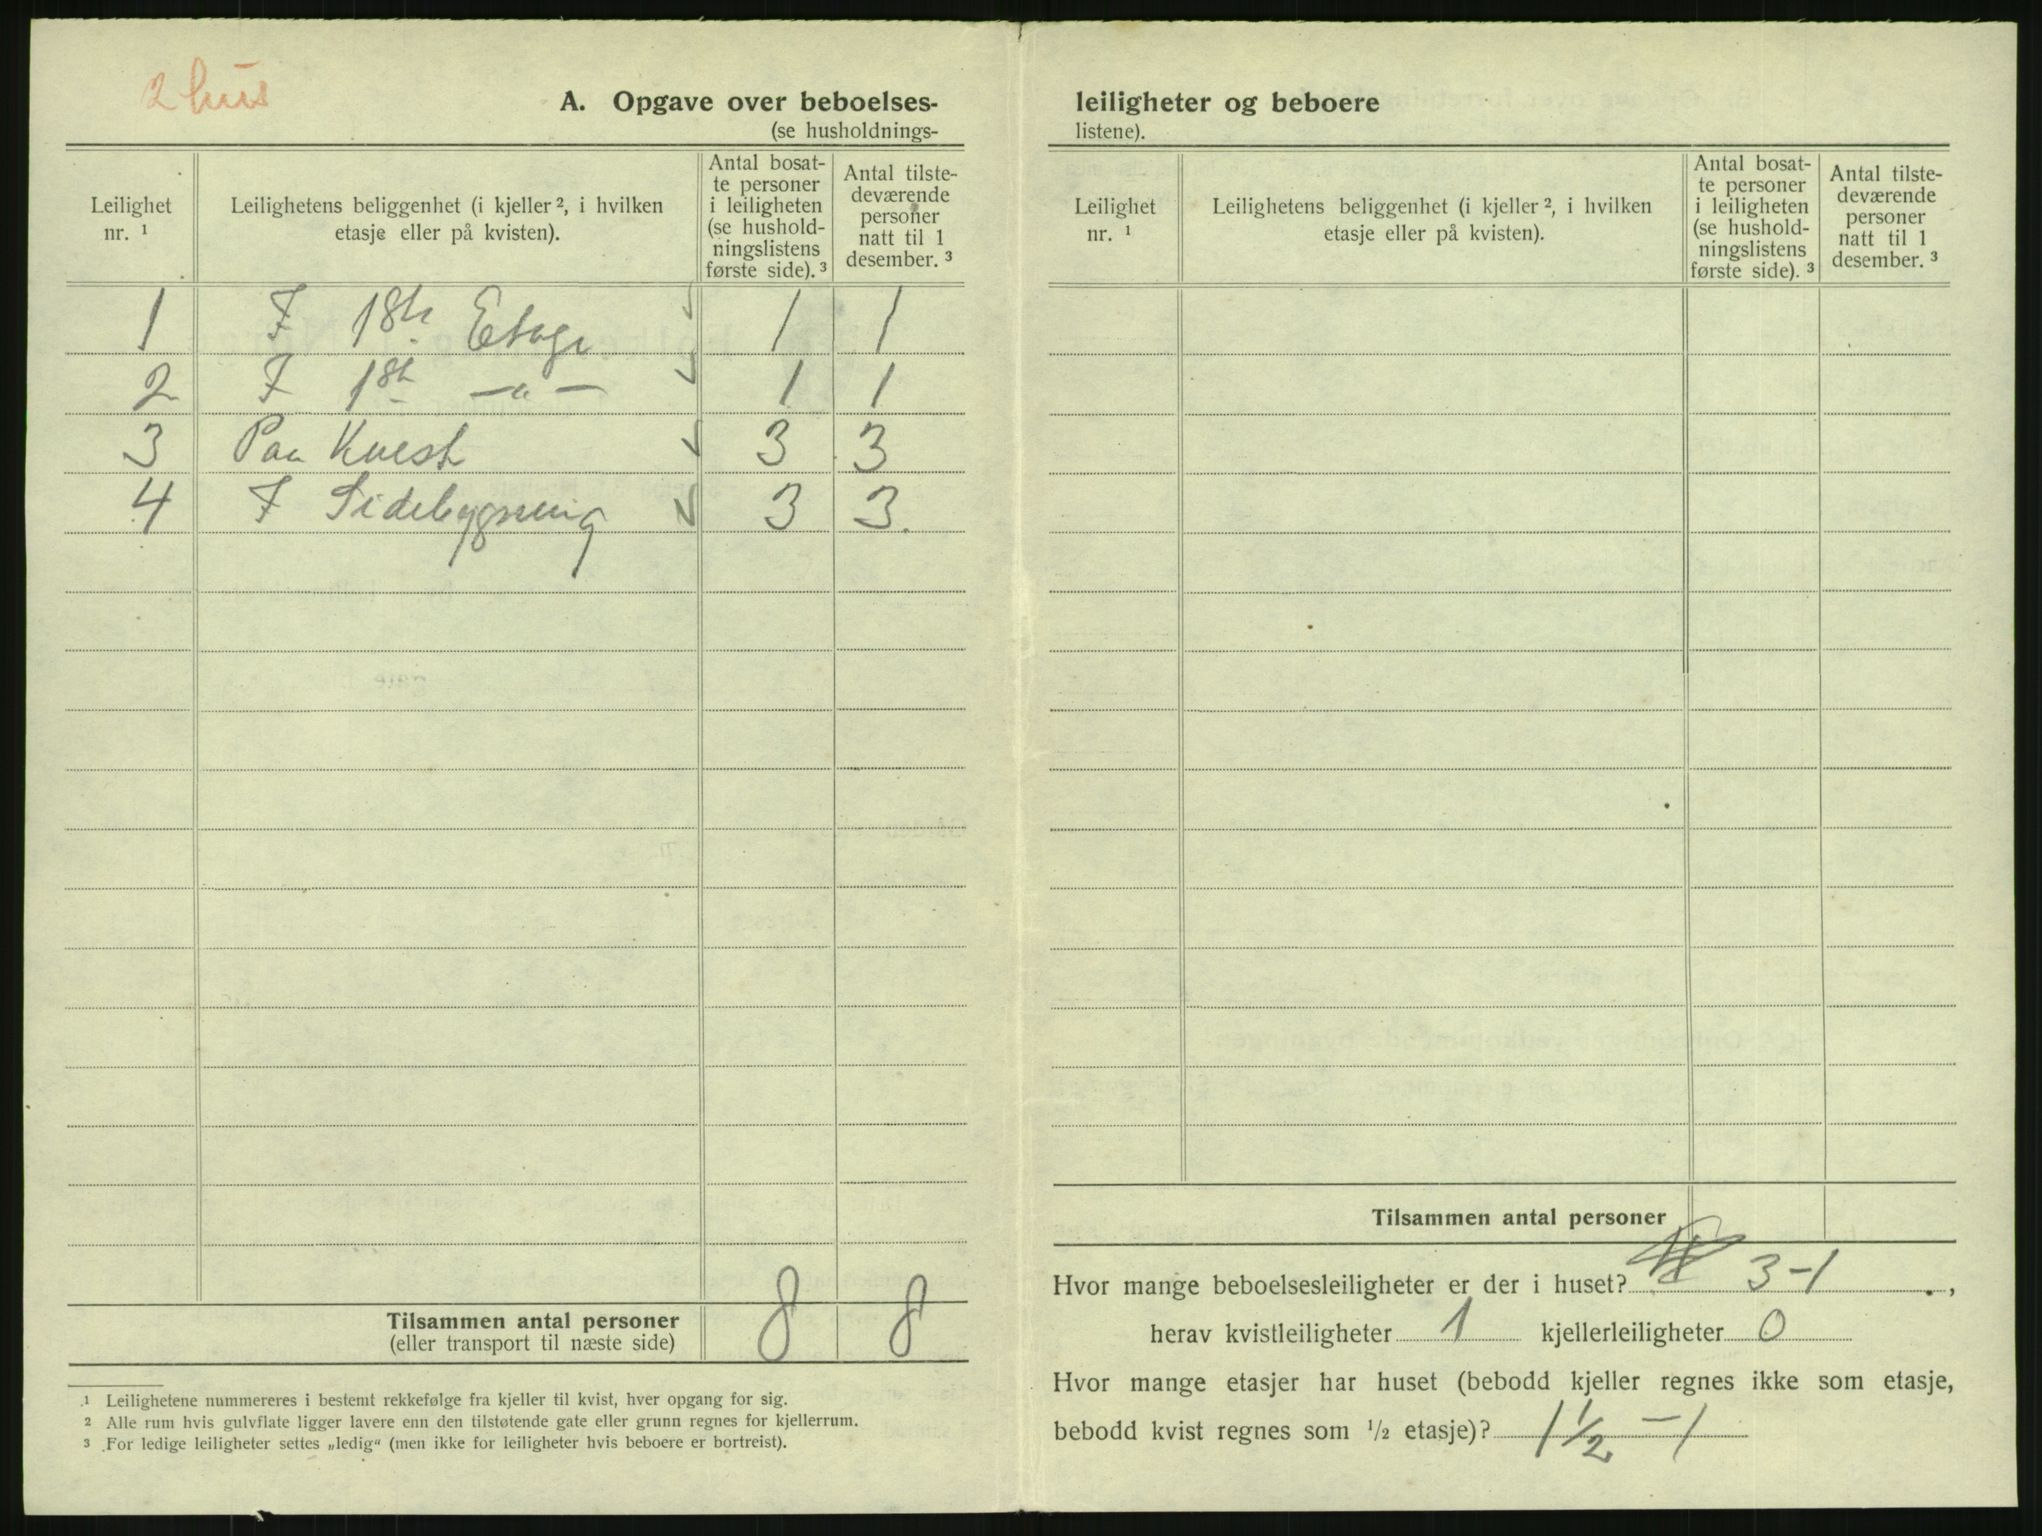 2 hus
A. Opgave over beboelses-
(se husholdnings-
Leilighet nr. ¹
Leilighetens beliggenhet (i kjeller ², i hvilken etasje eller på kvisten).
Antal bosat-
te personer
i leiligheten
(se hushold-
ningslistens
første side). ³
Antal tilste-
deværende
personer
natt til 1
desember. ³
1 I 1ste Etage 1 1
2 I 1st — " — 1 1
3 Paa Kvest 3 3
4 I Sidebygning 3 3.
Tilsammen antal personer 8 8
(eller transport til næste side)
¹ Leilighetene nummereres i bestemt rekkefølge fra kjeller til kvist, hver opgang for sig.
² Alle rum hvis gulvflate ligger lavere enn den tilstøtende gate eller grunn regnes for kjellerrum.
³ For ledige leiligheter settes „ledig" (men ikke for leiligheter hvis beboere er bortreist).
leiligheter og beboere
listene).
Leilighet nr. ¹
Leilighetens beliggenhet (i kjeller ², i hvilken etasje eller på kvisten).
Antal bosat-
te personer
i leiligheten
(se hushold-
ningslistens
første side). ³
Antal tilste-
deværende
personer
natt til 1
desember. ³
Tilsammen antal personer
Hvor mange beboelsesleiligheter er der i huset? 3-1 ,
herav kvistleiligheter 1 kjellerleiligheter 0
Hvor mange etasjer har huset (bebodd kjeller regnes ikke som etasje,
bebodd kvist regnes som ½ etasje)? 1½ - 1